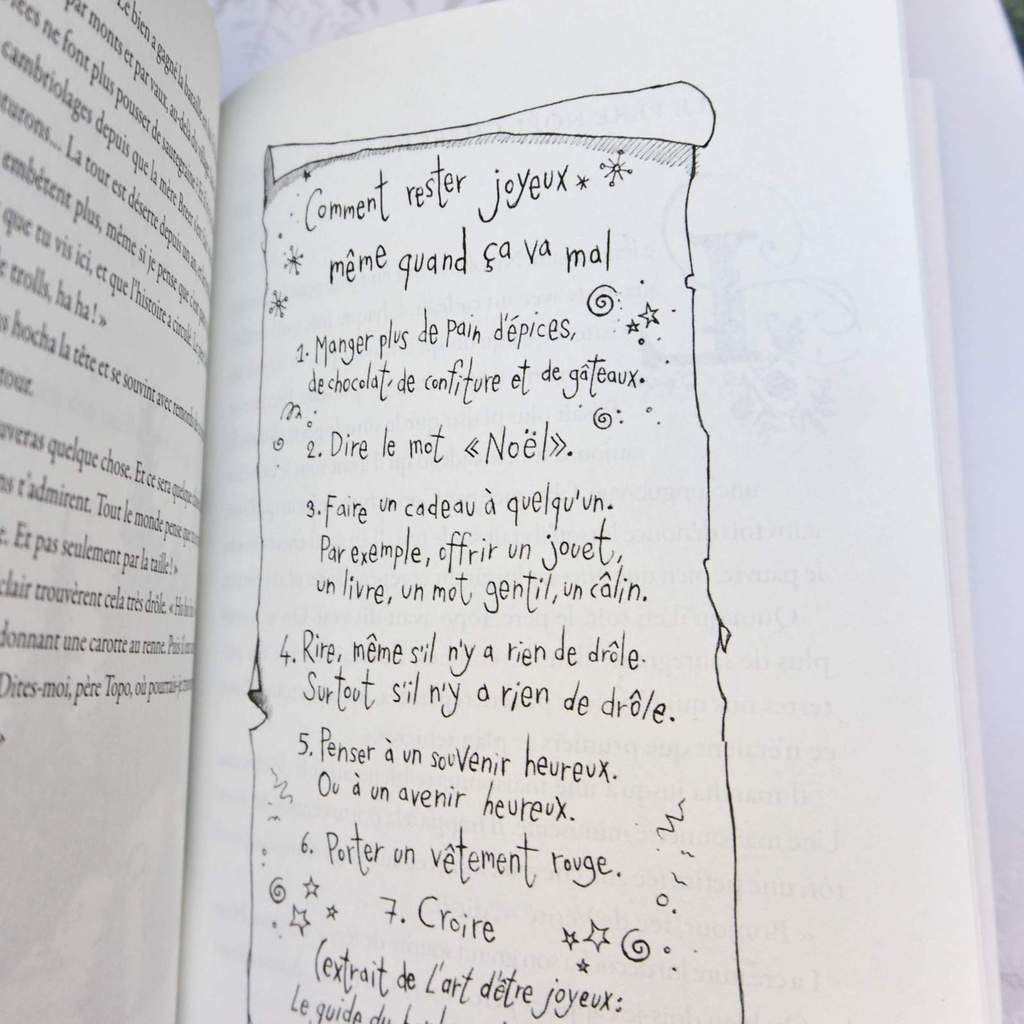 Le bien a gagné la bataille
par monts et par vaux, au-delà du village
ne font plus pousser de sauterelle
cambriolages depuis que la mère Breer
La tour est déserte depuis un an
embêtent plus, même si je pense que
que tu vis ici, et que l'histoire a circulé.
trolls, ha ha ! »
hocha la tête et se souvint avec
tour.
quelque chose. Et ce sera quelque
t'admirent. Tout le monde pense que
Et pas seulement par la taille ! »
trouvèrent cela très drôle. «
donnant une carotte au renne. Puis il
Dites-moi, père Topo, où pourrais-je
»
Comment rester joyeux*
même quand ça va mal
1. Manger plus de pain d'épices,
de chocolat, de confiture et de gâteaux.
2. Dire le mot «Noël».
3. Faire un cadeau à quelqu'un.
Par exemple, offrir un jouet,
un livre, un mot gentil, un câlin.
4. Rire, même s'il n'y a rien de drôle.
Surtout s'il n'y a rien de drôle.
5. Penser à un souvenir heureux.
Ou à un avenir heureux.
6. Porter un vêtement rouge.
7. Croire
(extrait de L'art d'être joyeux :
Le guide du